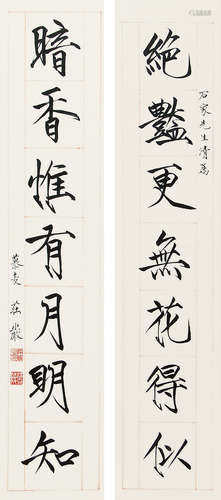 絕豔更無花得似
石家先生清屬
暗香惟有月明知
慕陵莊嚴